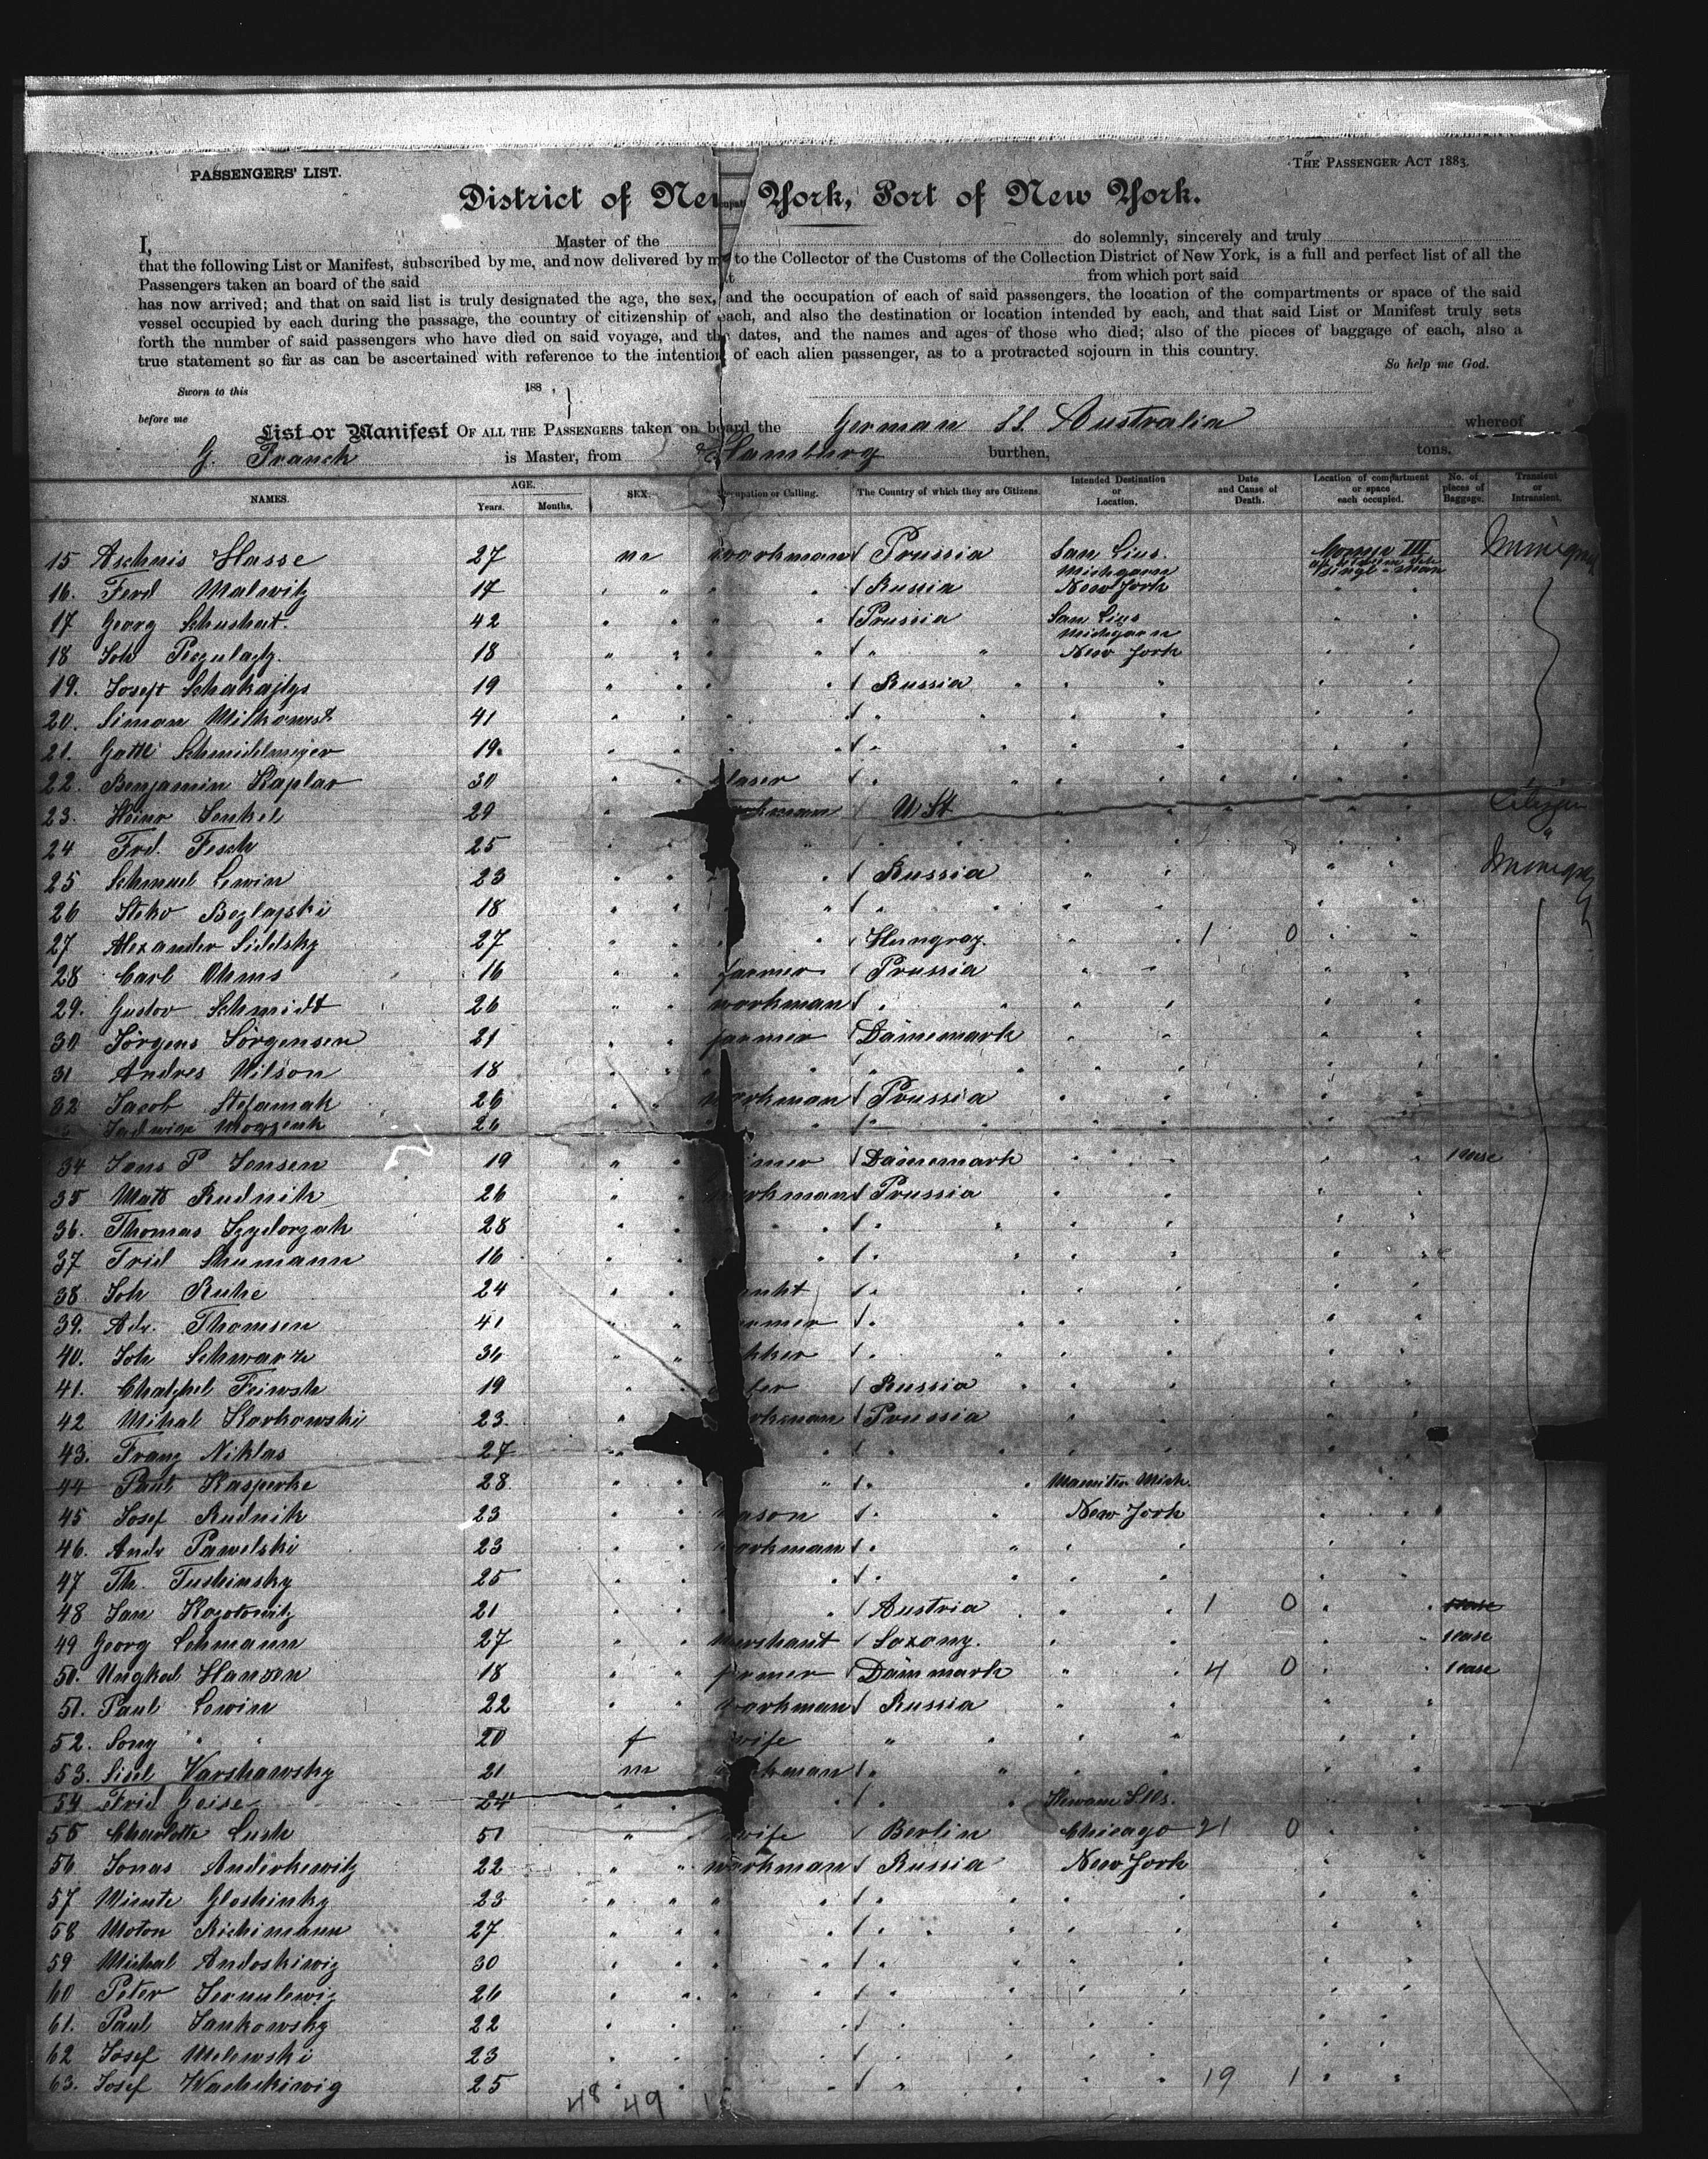 PASSENGERS' LIST.
THE PASSENGER ACT 1883.
District of New York, Port of New York.
I, Master of the do solemnly, sincerely and truly
that the following List or Manifest, subscribed by me, and now delivered by me to the Collector of the Customs of the Collection District of New York, is a full and perfect list of all the
Passengers taken an board of the said from which port said
has now arrived; and that on said list is truly designated the age, the sex, and the occupation of each of said passengers, the location of the compartments or space of the said
vessel occupied by each during the passage, the country of citizenship of each, and also the destination or location intended by each, and that said List or Manifest truly sets
forth the number of said passengers who have died on said voyage, and the dates, and the names and ages of those who died; also of the pieces of baggage of each, also a
true statement so far as can be ascertained with reference to the intention of each alien passenger, as to a protracted sojourn in this country.
So help me God.
Sworn to this 188 ,
before me
List or Manifest OF ALL THE PASSENGERS taken on board the German SS Australia whereof
G. Franck is Master, from Hamburg burthen, tons.
NAMES. AGE. Years. Months. SEX. Occupation or Calling. The Country of which they are Citizens. Intended Destination or Location. Date and Cause of Death. Location of compartment or space each occupied. No. of pieces of Baggage. Transient or Intransient.
15 Hasse 27 m workman Prussia San Lius. Michgarn
16. Ferd Malewitz 17 " " Russia New York
17 Georg Schushat. 42 " " Prussia San Lius Michgarn
18 Joh 18 " " " " New York
19. Josef 19 " " Russia " "
20. Simon 41 " " " "
21. Gottl Schmidlmejer 19 " " " "
22. Benjamin Kaplar 30 " glaser " "
23. Heinr Henkel 29 " workman U St. " Citizen
24 Frd. Fesch 25 " " " "
25 Schmuel Lewin 23 " " Russia " "
26 18 " " " "
27 Alexander Sidelsky 27 " " Hungray. " 1 0
28 Carl Ohms 16 " farmer Prussia " "
29. Gustav Schmidt 26 " workman " "
30 Jörgens Jörgensen 21 " farmer Dänemark " "
31 Andres Wilson 18 " " " "
32 Jacob Stefamak 26 " workman Prussia " "
26 " " " "
34 Jens P Jensen 19 " farmer Dänemark " " 1 case
35 Math Rudnik 26 " workman Prussia " "
36. Thomas Szydorzak 28 " " " "
37 Frid Shumann 16 " " " "
38 Joh Ruhe 24 " " "
39. Adr. Thomsen 41 " farmer " "
40. Joh Schwarz 36 " " "
41. Feinsch 19 " Russia " "
42 Mihal Korkowski 23 " workman Prussia " "
43. Franz Niklas 27 " " " "
44 Paul Kasperke 28 " " " Mich.
45 Josef Rudnik 23 " mason " New York
46. Andr Pawelski 23 " workman " "
47 Th. Tushinsky 25 " " " "
48 Jan Kozotowitz 21 " " Austria " 1 0
49 Georg Lehmann 27 " Merchant Saxony. " 1 case
50. Hansen 18 " farmer Dänmark " 4 0 1 case
51. Paul Lewin 22 " workman Russia " "
52. Sony " " 20 f wife " " "
53. Sisel Warshawsky 21 m workman " "
54 Frid Geise 24 " " "
55 Charlotte Lush 51 " wife Berlin Chicago 21 0
56 Jonas Anderkewitz 22 " workman Russia New York
57 Gloshinky 23 " " " "
58 Moton 27 " " " "
59 Michal Andoskiwiz 30 " " " "
60 Peter Sernulewiz 26 " " " "
61. Paul Jankowsky 22 " " " "
62 Josef Melewski 23 " " " "
63. Josef Washkiwig 25 " " " " 19 1
48 49